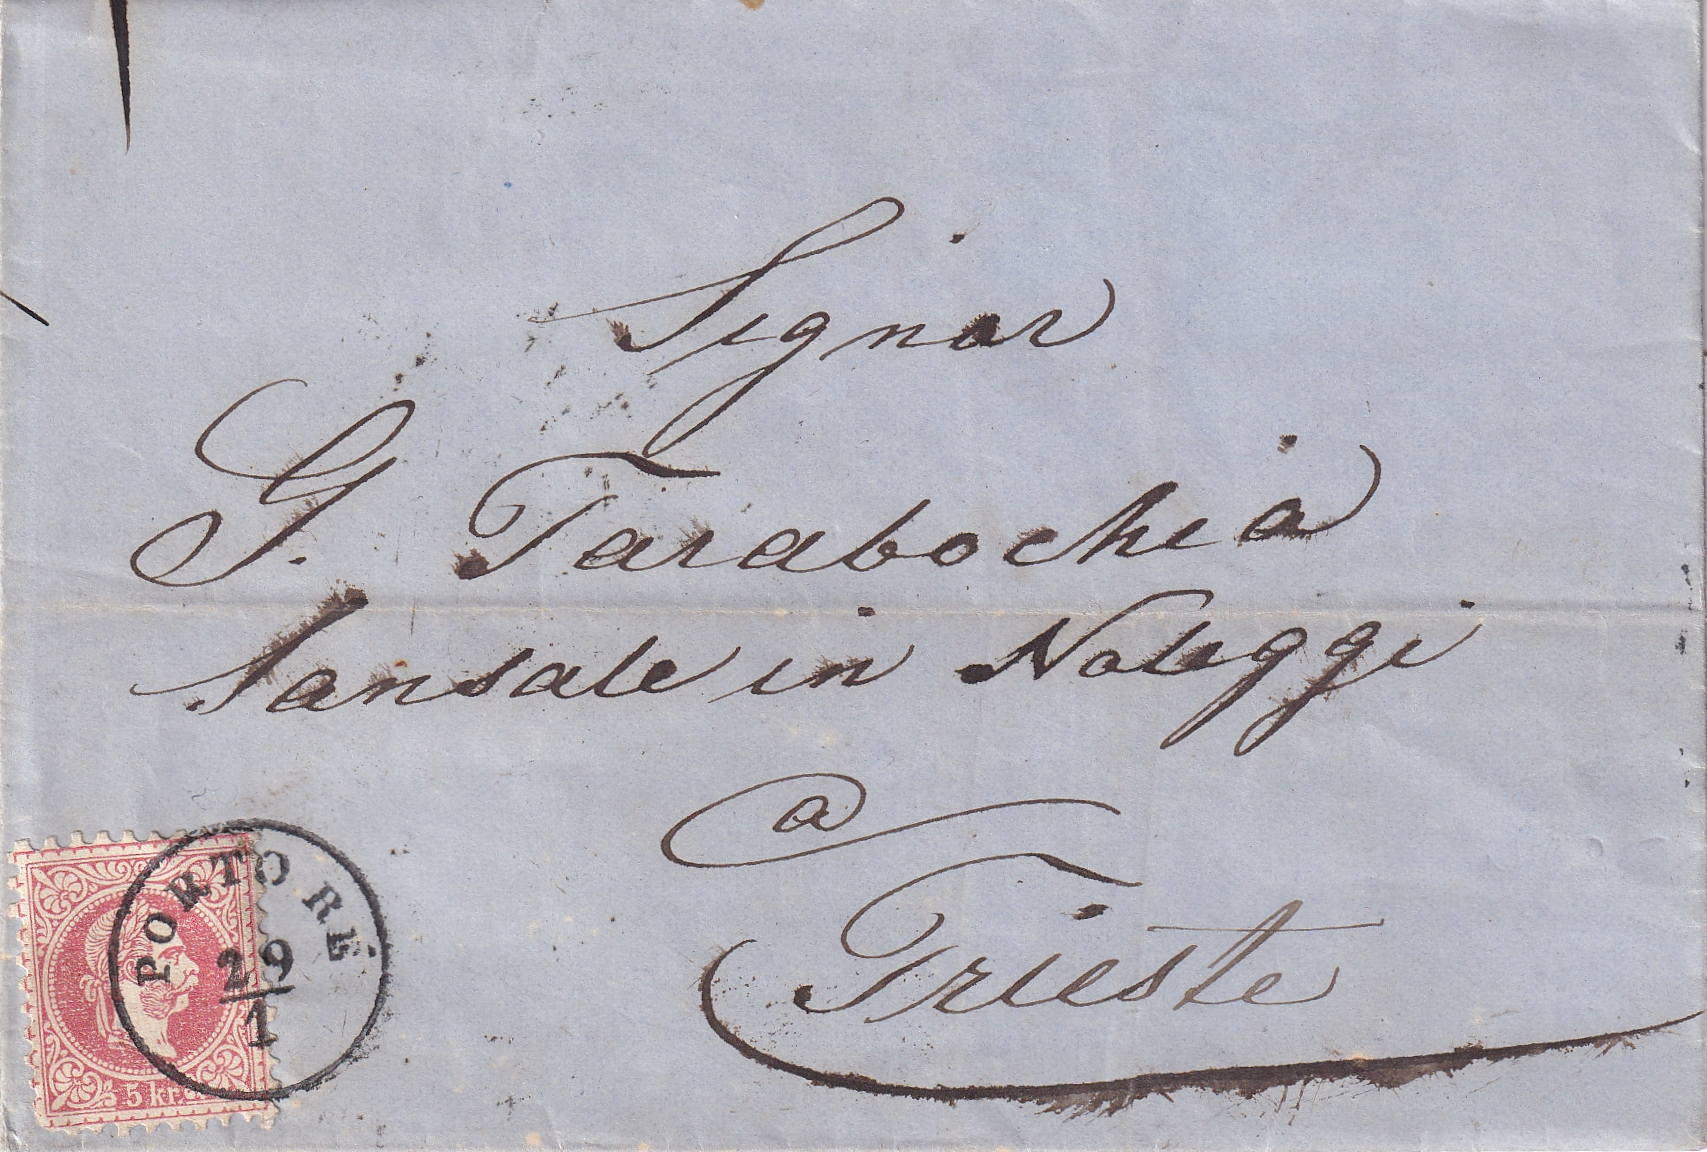 Signor
G. Tarabochia
Sansale in Noleggi
a
Trieste
PORTO RÉ
29
1
5 kr.